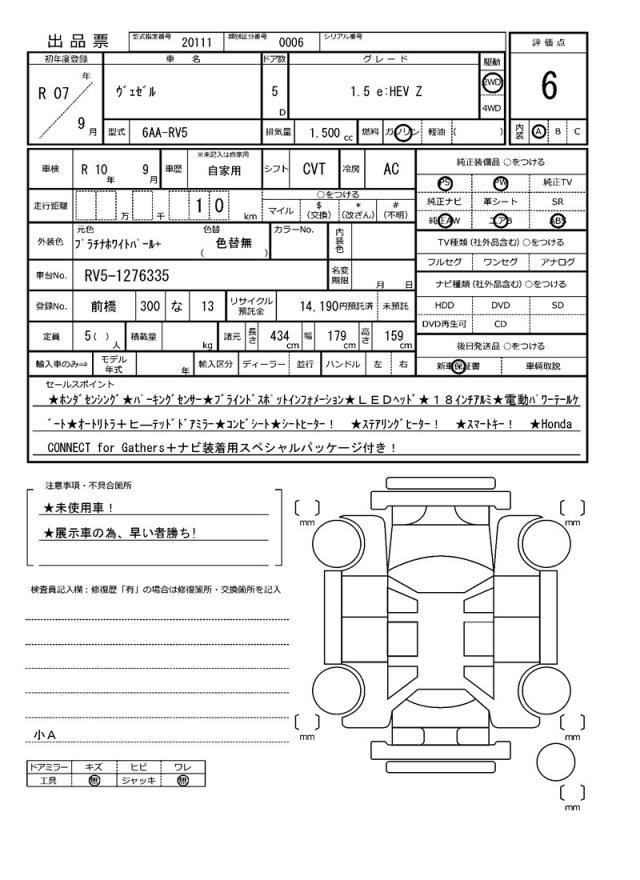 出品票 型式指定番号 20111 類別区分番号 0006 シリアル番号
評価点
初年度登録 車名 ドア数 グレード 駆動
R 07 年 9 月 ヴェゼル 5 D 1.5 e:HEV Z 2WD 4WD 6
型式 6AA-RV5 排気量 1.500 cc 燃料 ガソリン 軽油 ( ) 内装 A B C
車検 R 10 年 9 月 車歴 ※未記入は自家用 自家用 シフト CVT 冷房 AC
走行距離 万 千 1 0 km ○をつける マイル $ (交換) * (改ざん) # (不明)
外装色 元色 プラチナホワイトパール+ 色替 ( 色替無 ) カラーNo. 内装色
車台No. RV5-1276335 名変期限 月 日
登録No. 前橋 300 な 13 リサイクル預託金 14,190円預託済 未預託
定員 5( ) 人 積載量 kg 諸元 長さ 434 cm 幅 179 cm 高さ 159 cm
輸入車のみ⇒ モデル年式 年 輸入区分 ディーラー 並行 ハンドル 左 右
純正装備品 ○をつける
PS PW 純正TV
純正ナビ 革シート SR
純正AW エアB ABS
TV種類 (社外品含む) ○をつける
フルセグ ワンセグ アナログ
ナビ種類 (社外品含む) ○をつける
HDD DVD SD
DVD再生可 CD
後日発送品 ○をつける
新車保証書 車輌取説
セールスポイント
★ホンダセンシング★パーキングセンサー★ブラインドスポットインフォメーション★ＬＥＤヘッド★１８インチアルミ★電動パワーテールゲ
ート★オートリトラ＋ヒーテッドドアミラー★コンビシート★シートヒーター！ ★ステアリングヒーター！ ★スマートキー！ ★Honda
CONNECT for Gathers＋ナビ装着用スペシャルパッケージ付き！
注意事項・不具合箇所
★未使用車！
★展示車の為、早い者勝ち!
検査員記入欄：修復歴「有」の場合は修復箇所・交換箇所を記入
小Ａ
ドアミラー キズ ヒビ ワレ
工具 無 ジャッキ 無
mm
mm
mm
mm
mm